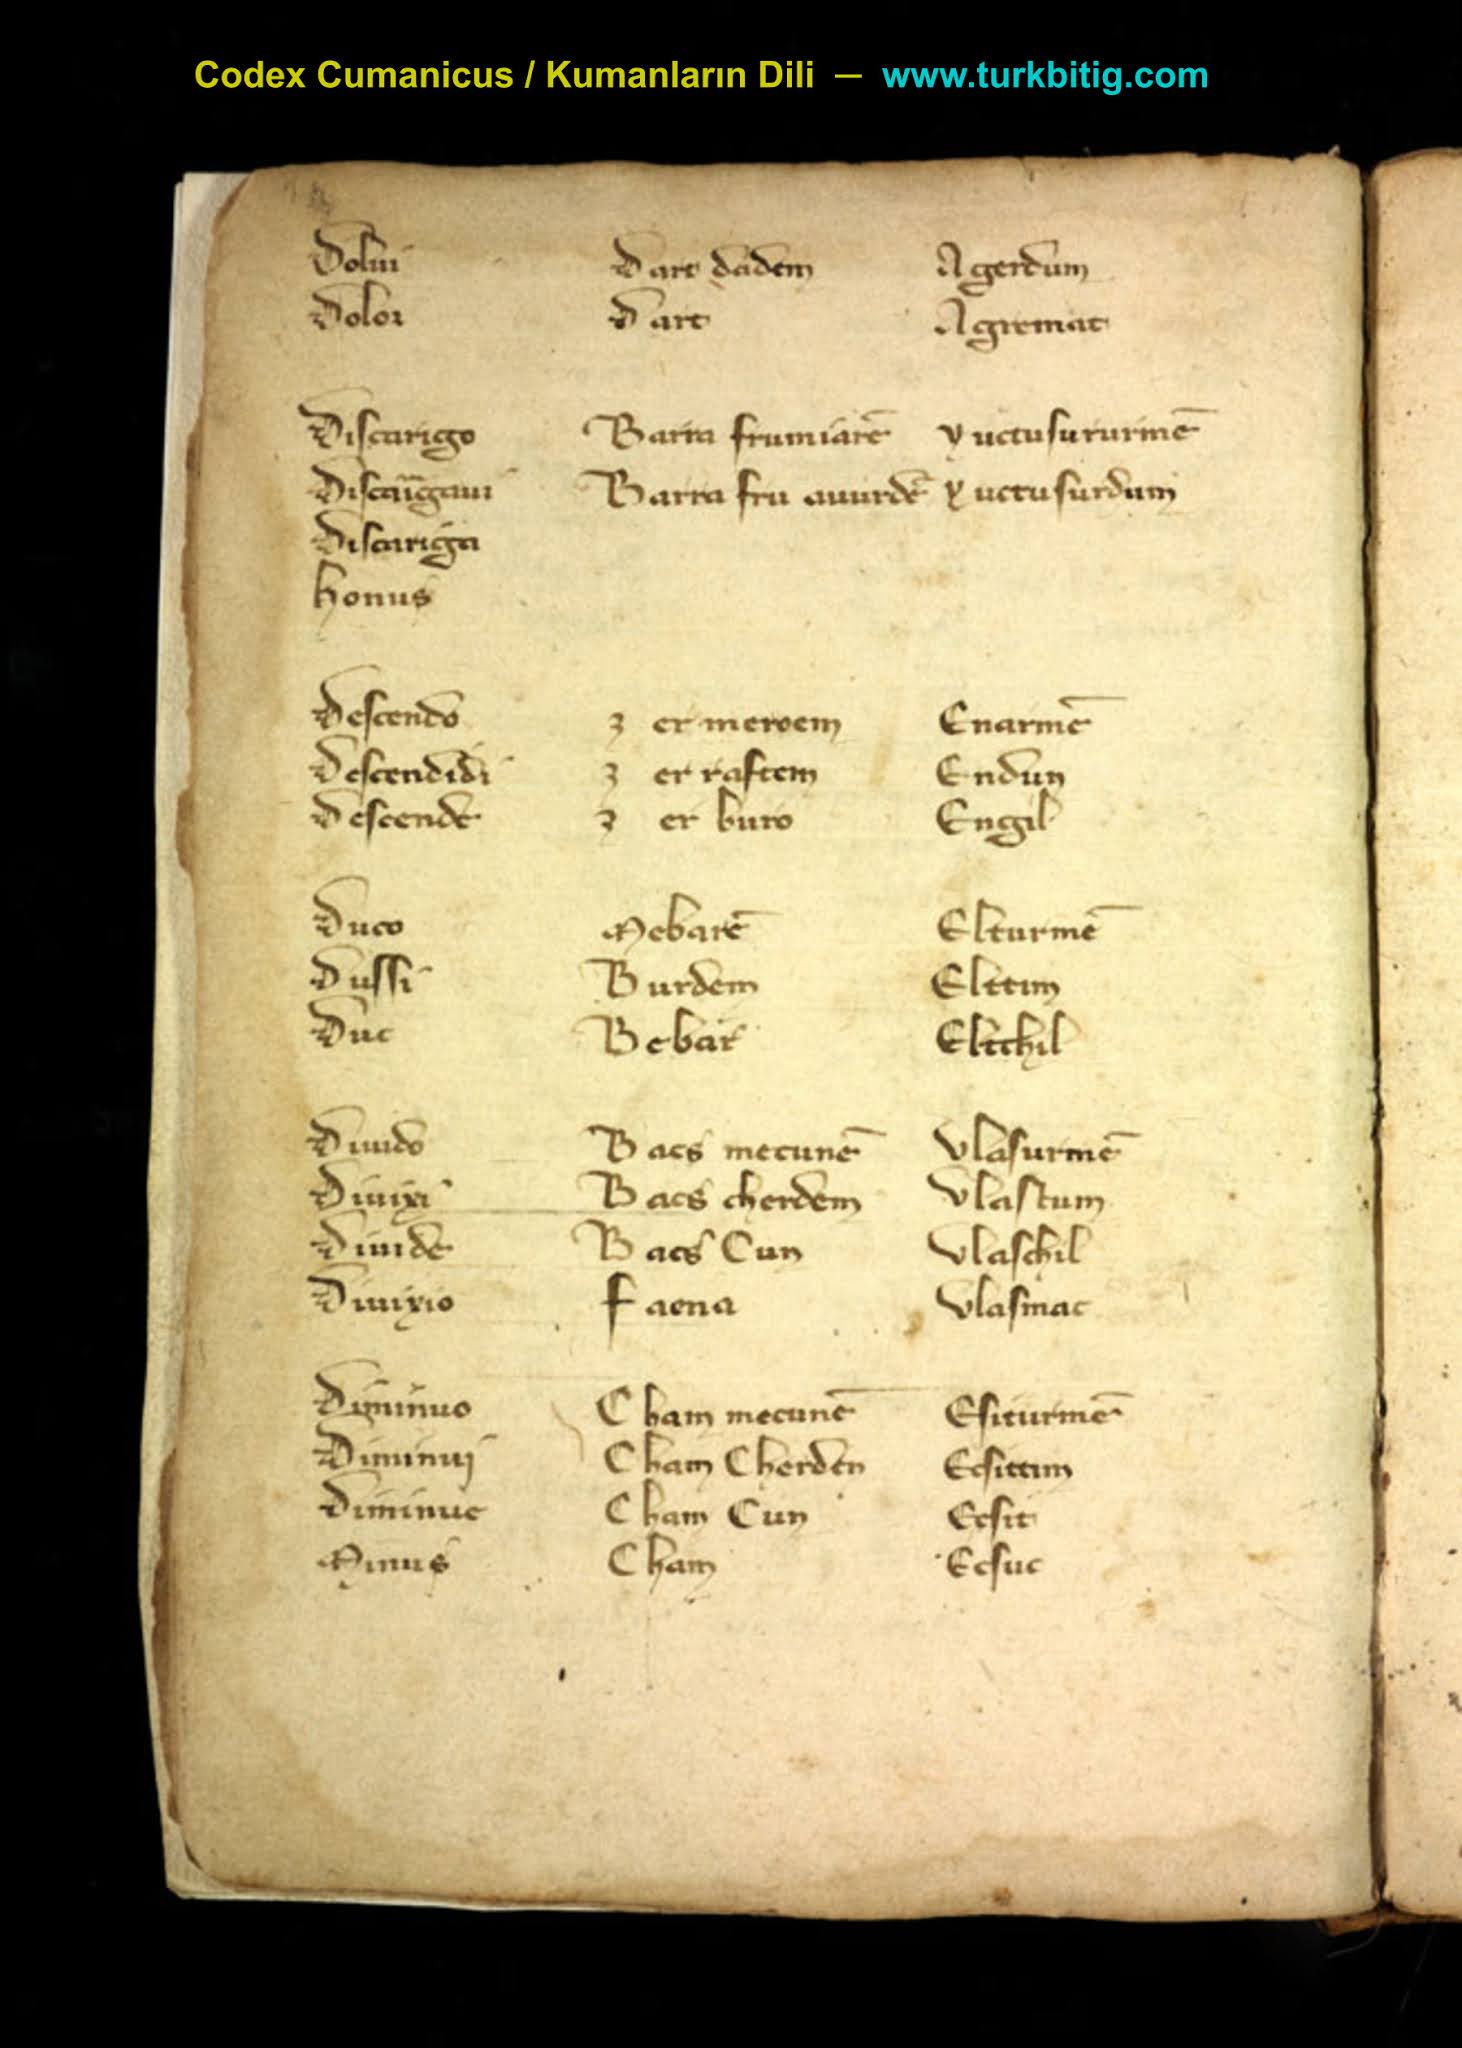 Codex Cumanicus / Kumanların Dili — www.turkbitig.com
Dolui Dart dadem Agerdum
Dolor Dart Agremac
Discarigo Barra frumiarē yuctusururmē
Discarigaui Barra fru auurdē yuctusurdum
Discariga
honus
Descendo z er meroem Enarmē
Descendidi z er raftem Endun
Descende z er buro Engil
Duco Mebarē Elturmē
Dussi Burdem Elttim
Duc Bebar Eltchil
Diuido Bacs mecunē Vlasurmē
Diuixi Bacs cherdem Vlastum
Diuide Bacs Cun Vlaschil
Diuixio Faena Vlasmac
Diminuo Cham mecunē Esiturmē
Diminuj Cham Cherden Ecsittim
Diminue Cham Cun Ecsit
Minus Cham Ecsuc